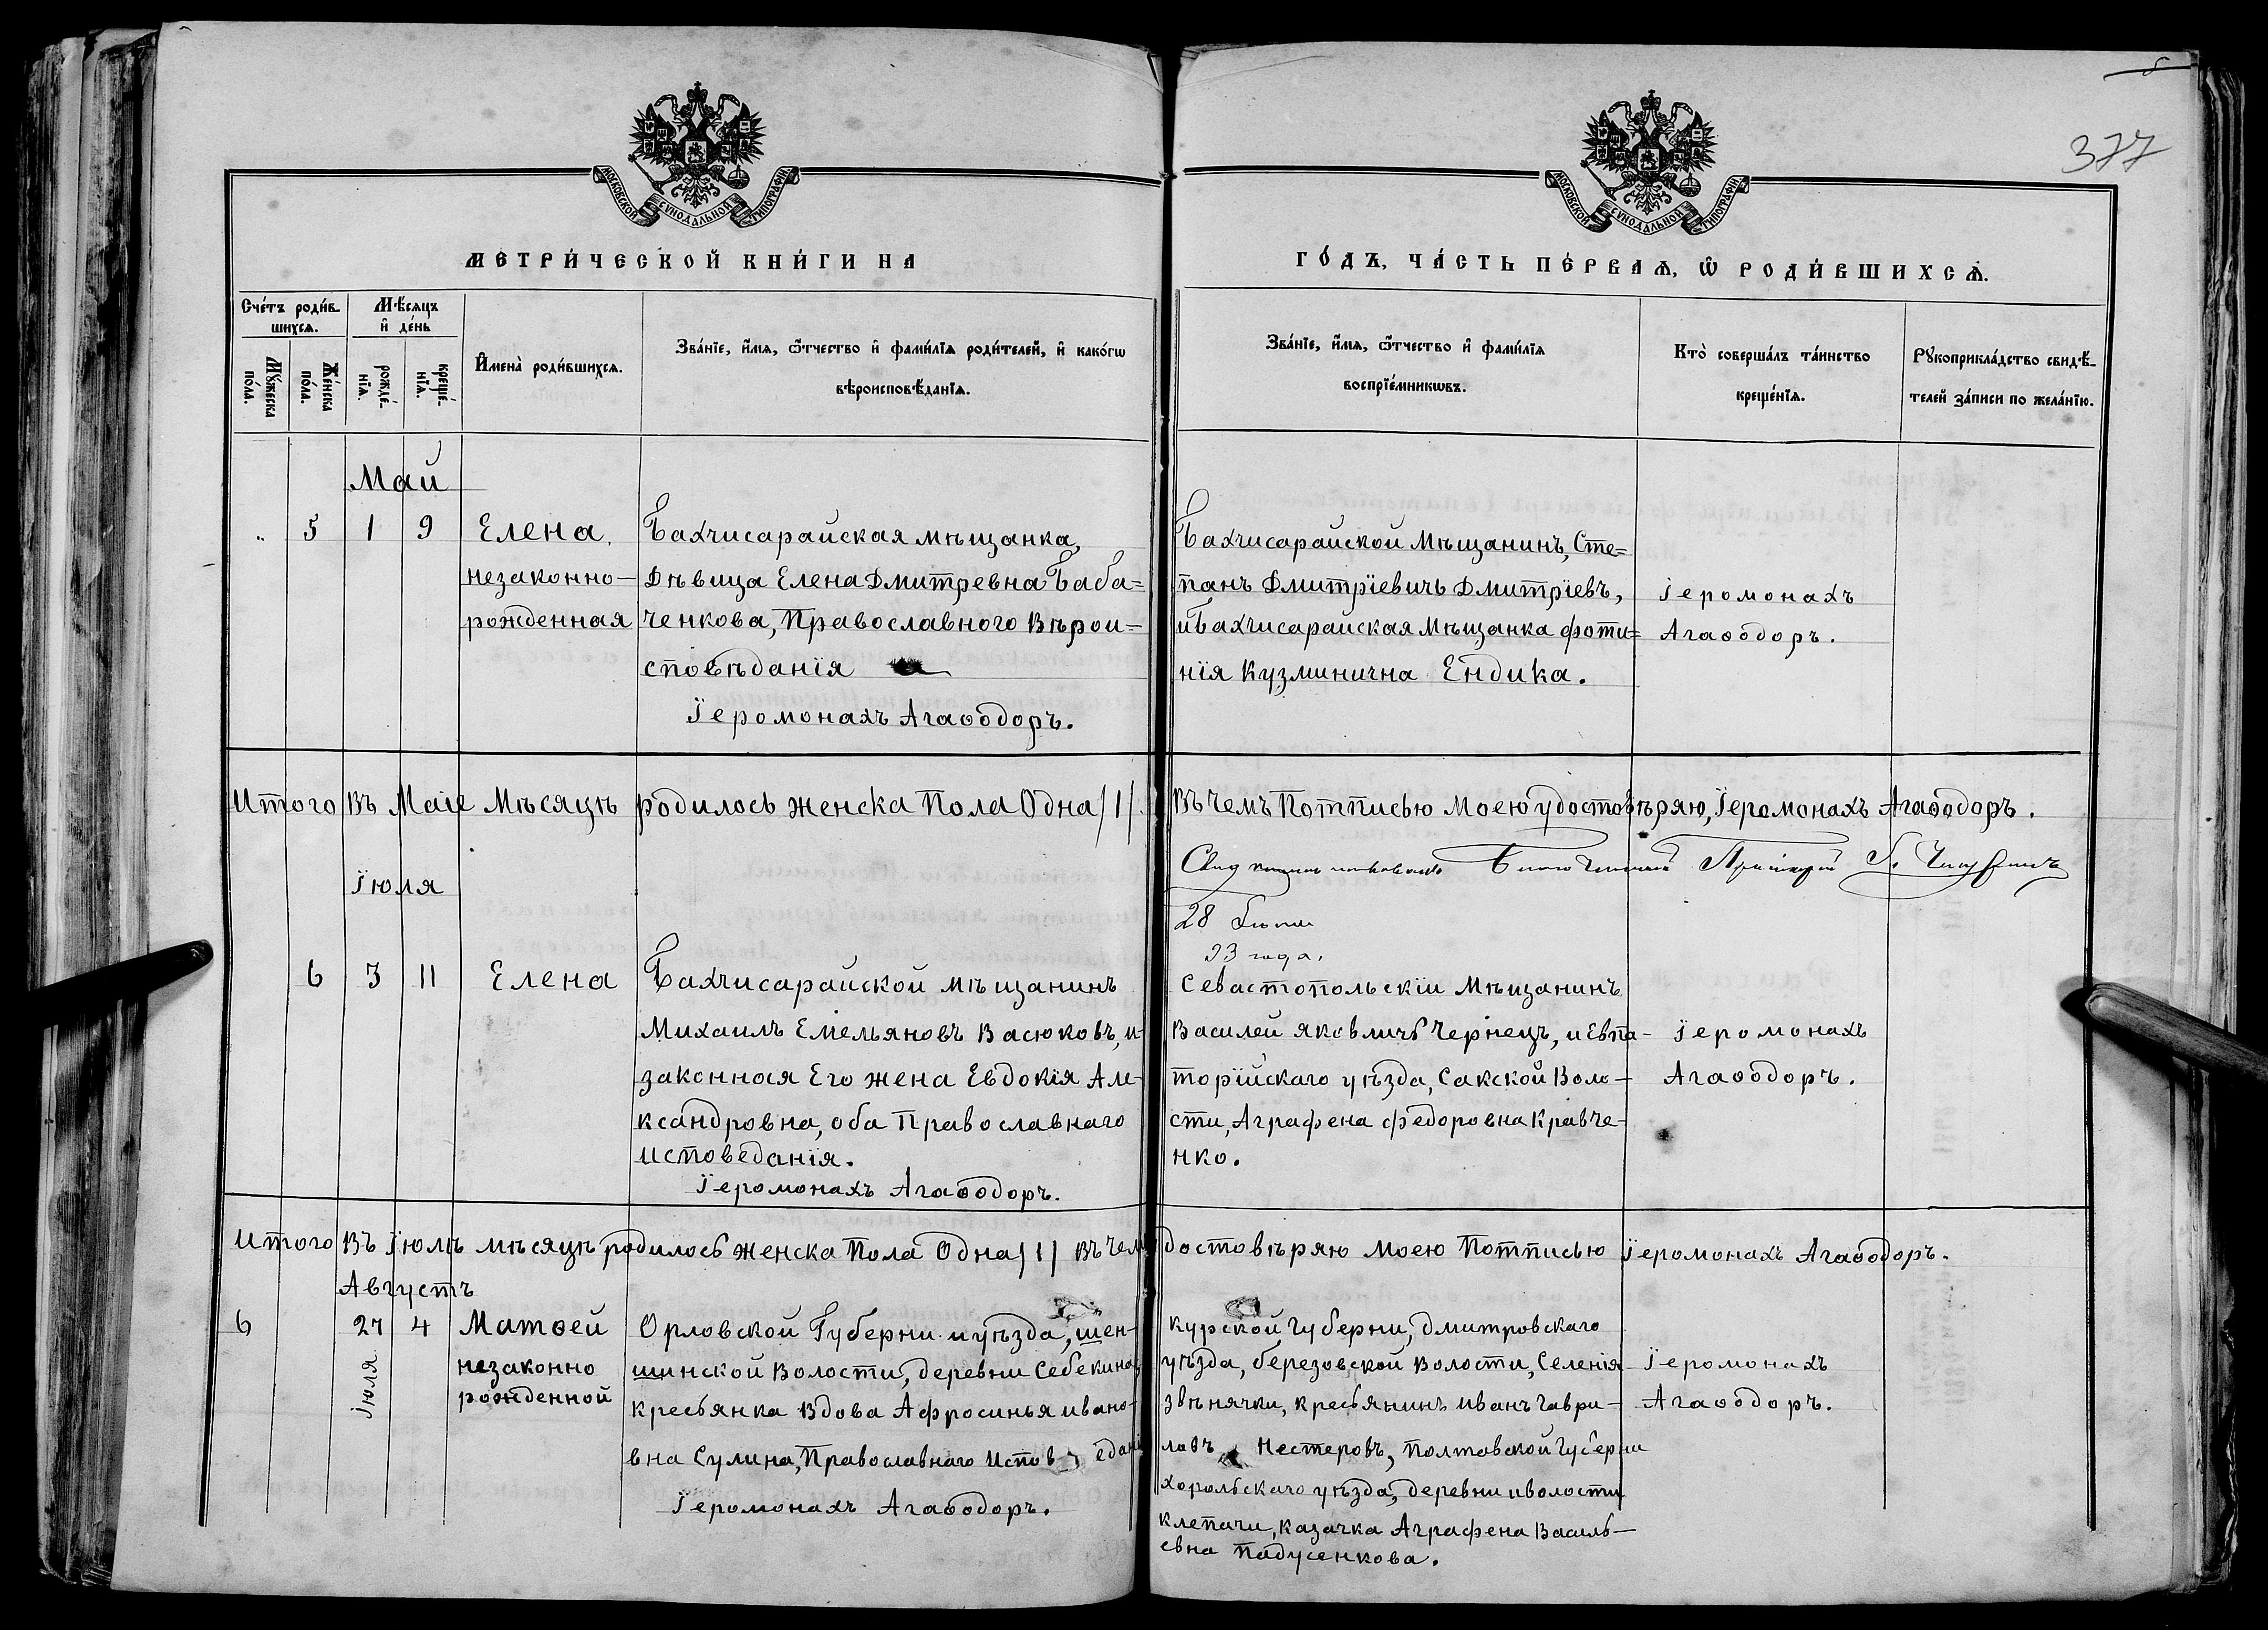 5
377
МОСКОВСКОЙ СѴНОДАЛЬНОЙ ТИПОГРАФІИ
МОСКОВСКОЙ СѴНОДАЛЬНОЙ ТИПОГРАФІИ
МЕТРИ́ЧЕСКОЙ КНИ́ГИ НА
ГО́ДЪ, ЧА́СТЬ ПЕ́РВАѦ, Ѽ РОДИ́ВШИХСѦ.
Сче́тъ роди́в-
шихсѧ.
Мѣ́сѧцъ
и҆ де́нь
Мꙋ́жеска
по́ла.
Же́нска
по́ла.
рожде́-
нїѧ.
креще́-
нїѧ.
И҆мена̀ роди́вшихсѧ.
Зва́нїе, и҆́мѧ, ѻ҆́тчество и҆ фами́лїѧ роди́телей, и҆ како́гѡ
вѣроисповѣ́данїѧ.
Зва́нїе, и҆́мѧ, ѻ҆́тчество и҆ фами́лїѧ
воспрїе́мникѡвъ.
Кто̀ соверша́лъ та́инство
креще́нїѧ.
Рꙋкоприкла́дство свидѣ́-
телей за́писи по жела́нїю.
Май
„ 5 1 9 Елена.
незаконно-
рожденная
Бахчисарайская мѣщанка,
Дѣвица Елена Дмитревна Баба=
ченкова, Православного Вѣрои=
сповѣданія
Іеромонахъ Агаѳодоръ.
Бахчисарайской Мѣщанинъ, Сте=
панъ Дмитріевичъ Дмитріевъ,
и Бахчисарайская Мѣщанка Фоти=
нія Кузминична Ендика.
Іеромонахъ
Агаѳодоръ.
Итого Въ Маіе Мѣсяцѣ родилось женска Пола Одна /1/. Въ Чемъ Потписью Моею удостовѣряю, Іеромонахъ Агаѳодоръ.
Благочинный
28
93 года.
Іюля
6 3 11 Елена
Бахчисарайской мѣщанинъ
Михаилъ Емельяновъ Васюковъ, и
законная Его жена Евдокія Але-
ксандровна, оба Православнаго
исповеданія.
Іеромонахъ Агаѳодоръ.
Севастопольскій Мѣщанинъ
Василей Яковличъ Чернецъ, и Евпа-
торійскаго уѣзда, Сакской Воло-
сти, Аграфена Федоровна Кравче-
нко.
Іеромонахъ
Агаѳодоръ.
Итого Въ Іюлѣ мѣсяцѣ родилось женска Пола Одна /1/ Въ Чем достовѣряю Моею Потписью Іеромонахъ Агаѳодоръ.
Августъ
6 27 4 Матѳей
Іюля
незаконно
рожденной
Орловской Губерни и уѣзда, шен-
шинской Волости, деревни Себекина
Кресьянка Вдова Афросинья ивано-
вна Сулина, Православнаго Исповеда
Іеромонахъ Агаѳодоръ.
Курской Губерни, Дмитровскаго
уѣзда, березовской Волости, Селенія
звѣнячки, кресьянинъ иванъ Гаври-
ловъ Нестеровъ, Полтовской Губерни
хорольскаго уѣзда, деревни и волости
клепачи, казачка Аграфена Василь-
евна Падусенкова.
Іеромонахъ
Агаѳодоръ.